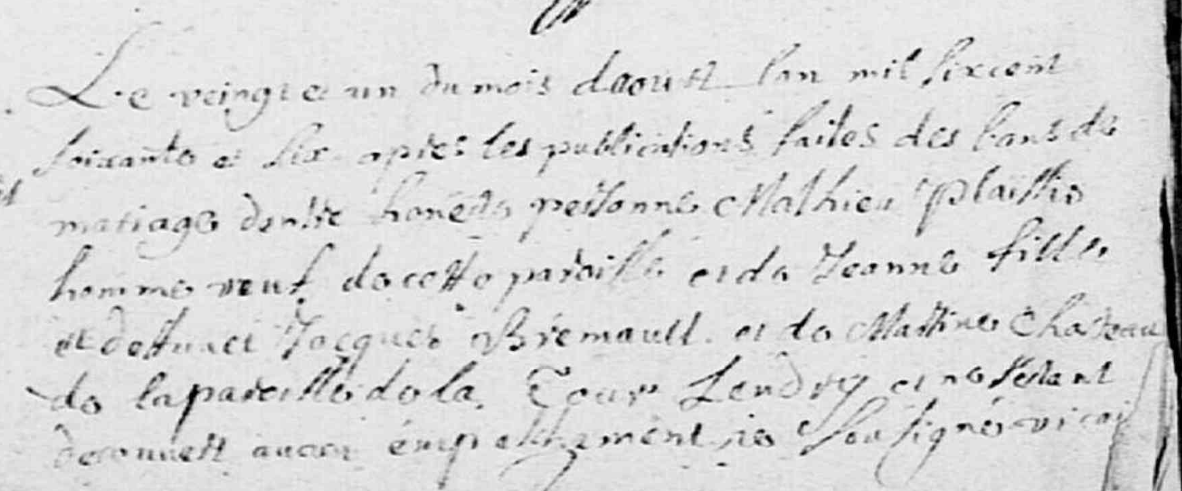 Le veingt et un du mois daoust lan mil sixcent
soixante et six apres les publications faites des bans de
mariage dentre honeste personne Mathieu Plaissis
homme veuf de cette paroisse et de Jeanne fille
et defunct Jacques Bremault et de Martine Chasteau
de laparoisse de la Tour Lendry et ne sestant
descouvert aucun empeschement je soussigné vicai